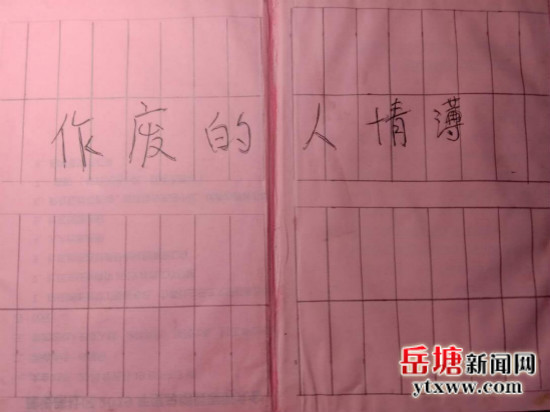 作废的人情薄
岳塘新闻网
ytxww.com